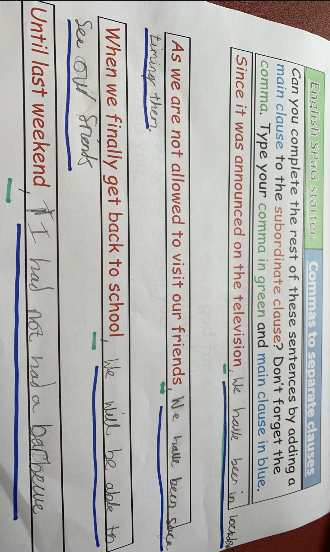 English SPaG starter
Commas to separate clauses
Can you complete the rest of these sentences by adding a
main clause to the subordinate clause? Don't forget the
comma. Type your comma in green and main clause in blue.
Since it was announced on the television, We have been in
As we are not allowed to visit our friends, We have been
timing them
When we finally get back to school, We will be able to
See our frients
Until last weekend, I had not had a barbecue